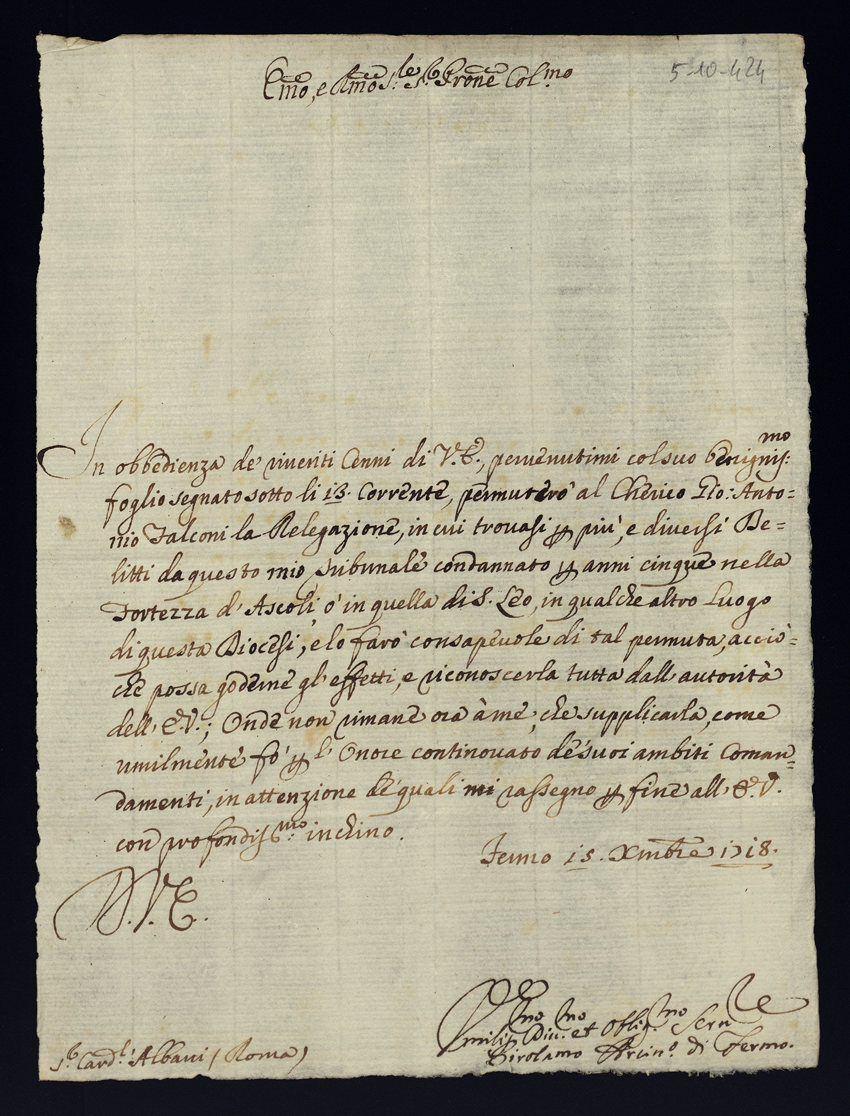 Emo, e Rmo S.re S.r Prone Col.mo
5-10-424
In obbedienza de' riveriti Cenni di V.E., pervenutimi col suo benignis:mo
foglio segnato sotto li 13. Corrente, permuterò al Cherico Pio: Anto=
nio Falconi la Relegazione, in cui trovasi p più, e diversi De=
litti da questo mio Tribunale condannato p anni cinque nella
Fortezza d'Ascoli, ò in quella di S. Leo, in qualche altro Luogo
di questa Diocesi, e lo farò consapevole di tal permuta, acciò=
che possa goderne gl'effetti, e riconoscerla tutta dall'autorità
dell'E.V.; Onde non rimane ora à me, che supplicarla, come
umilmente fò p l'Onore continovato de' suoi ambiti Coman=
damenti, in attenzione de' quali mi rassegno p fine all'E.V.
con profondis:mo inchino.
Fermo 15. Xmbre 1718.
D.V.E.
Umilis.mo Div.mo et Obblig.mo Serv.re
Girolamo Arciv.o di Fermo.
S.r Card.l Albani (Roma)